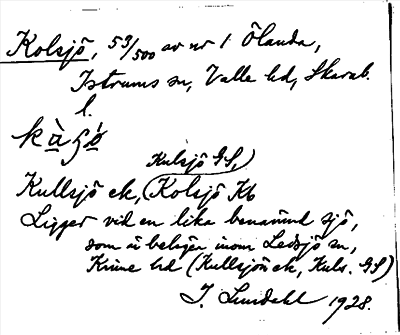 Kolsjö, 53/500 av nr 1 Ölanda,
Istrums sn, Valle hd, Skarab.
l.
kàʃò
Kulsjö GS,
Kullsjö ek, (Kolsjö Kb
Ligger vid en lika benämnd sjö,
som är belägen inom Ledsjö sn,
Kinne hd (Kullsjön ek, Kuls. GS)
J. Lundahl 1928.